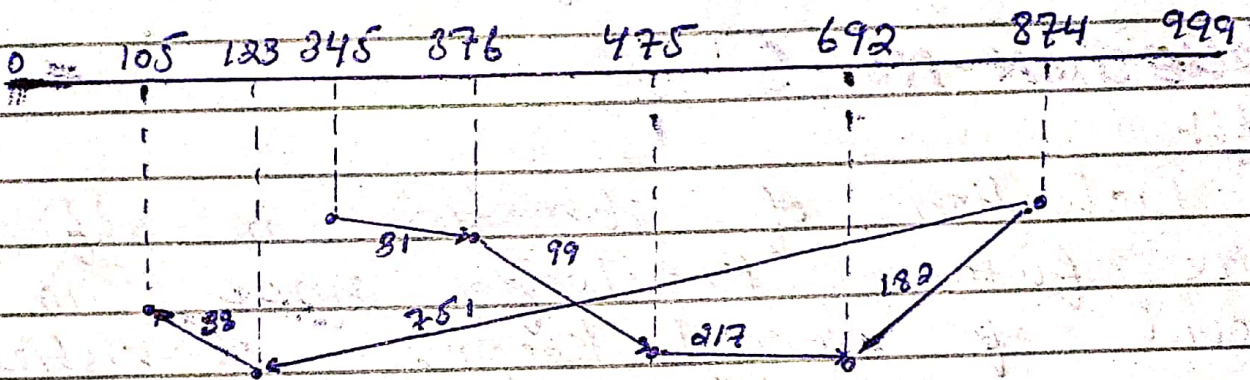 0 105 123 345 376 475 692 874 999
31 99
182
33 751
217